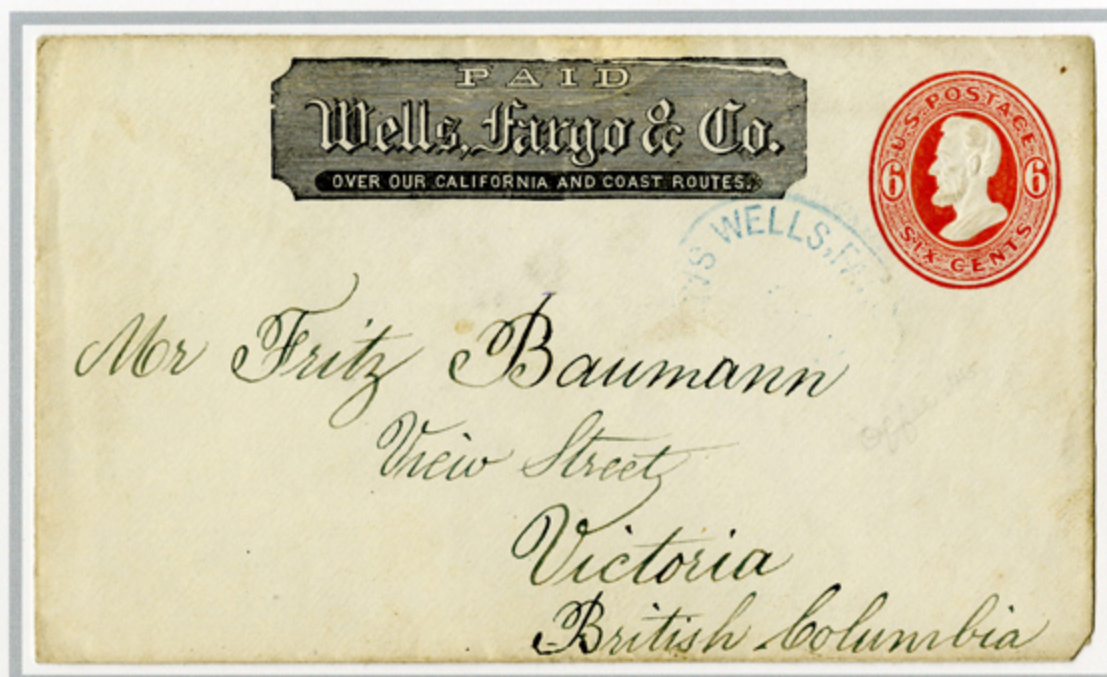 PAID
Wells, Fargo & Co.
OVER OUR CALIFORNIA AND COAST ROUTES.
U.S. POSTAGE
6 6
SIX CENTS
WELLS, FA
Mr Fritz Baumann
View Street
Victoria
British Columbia